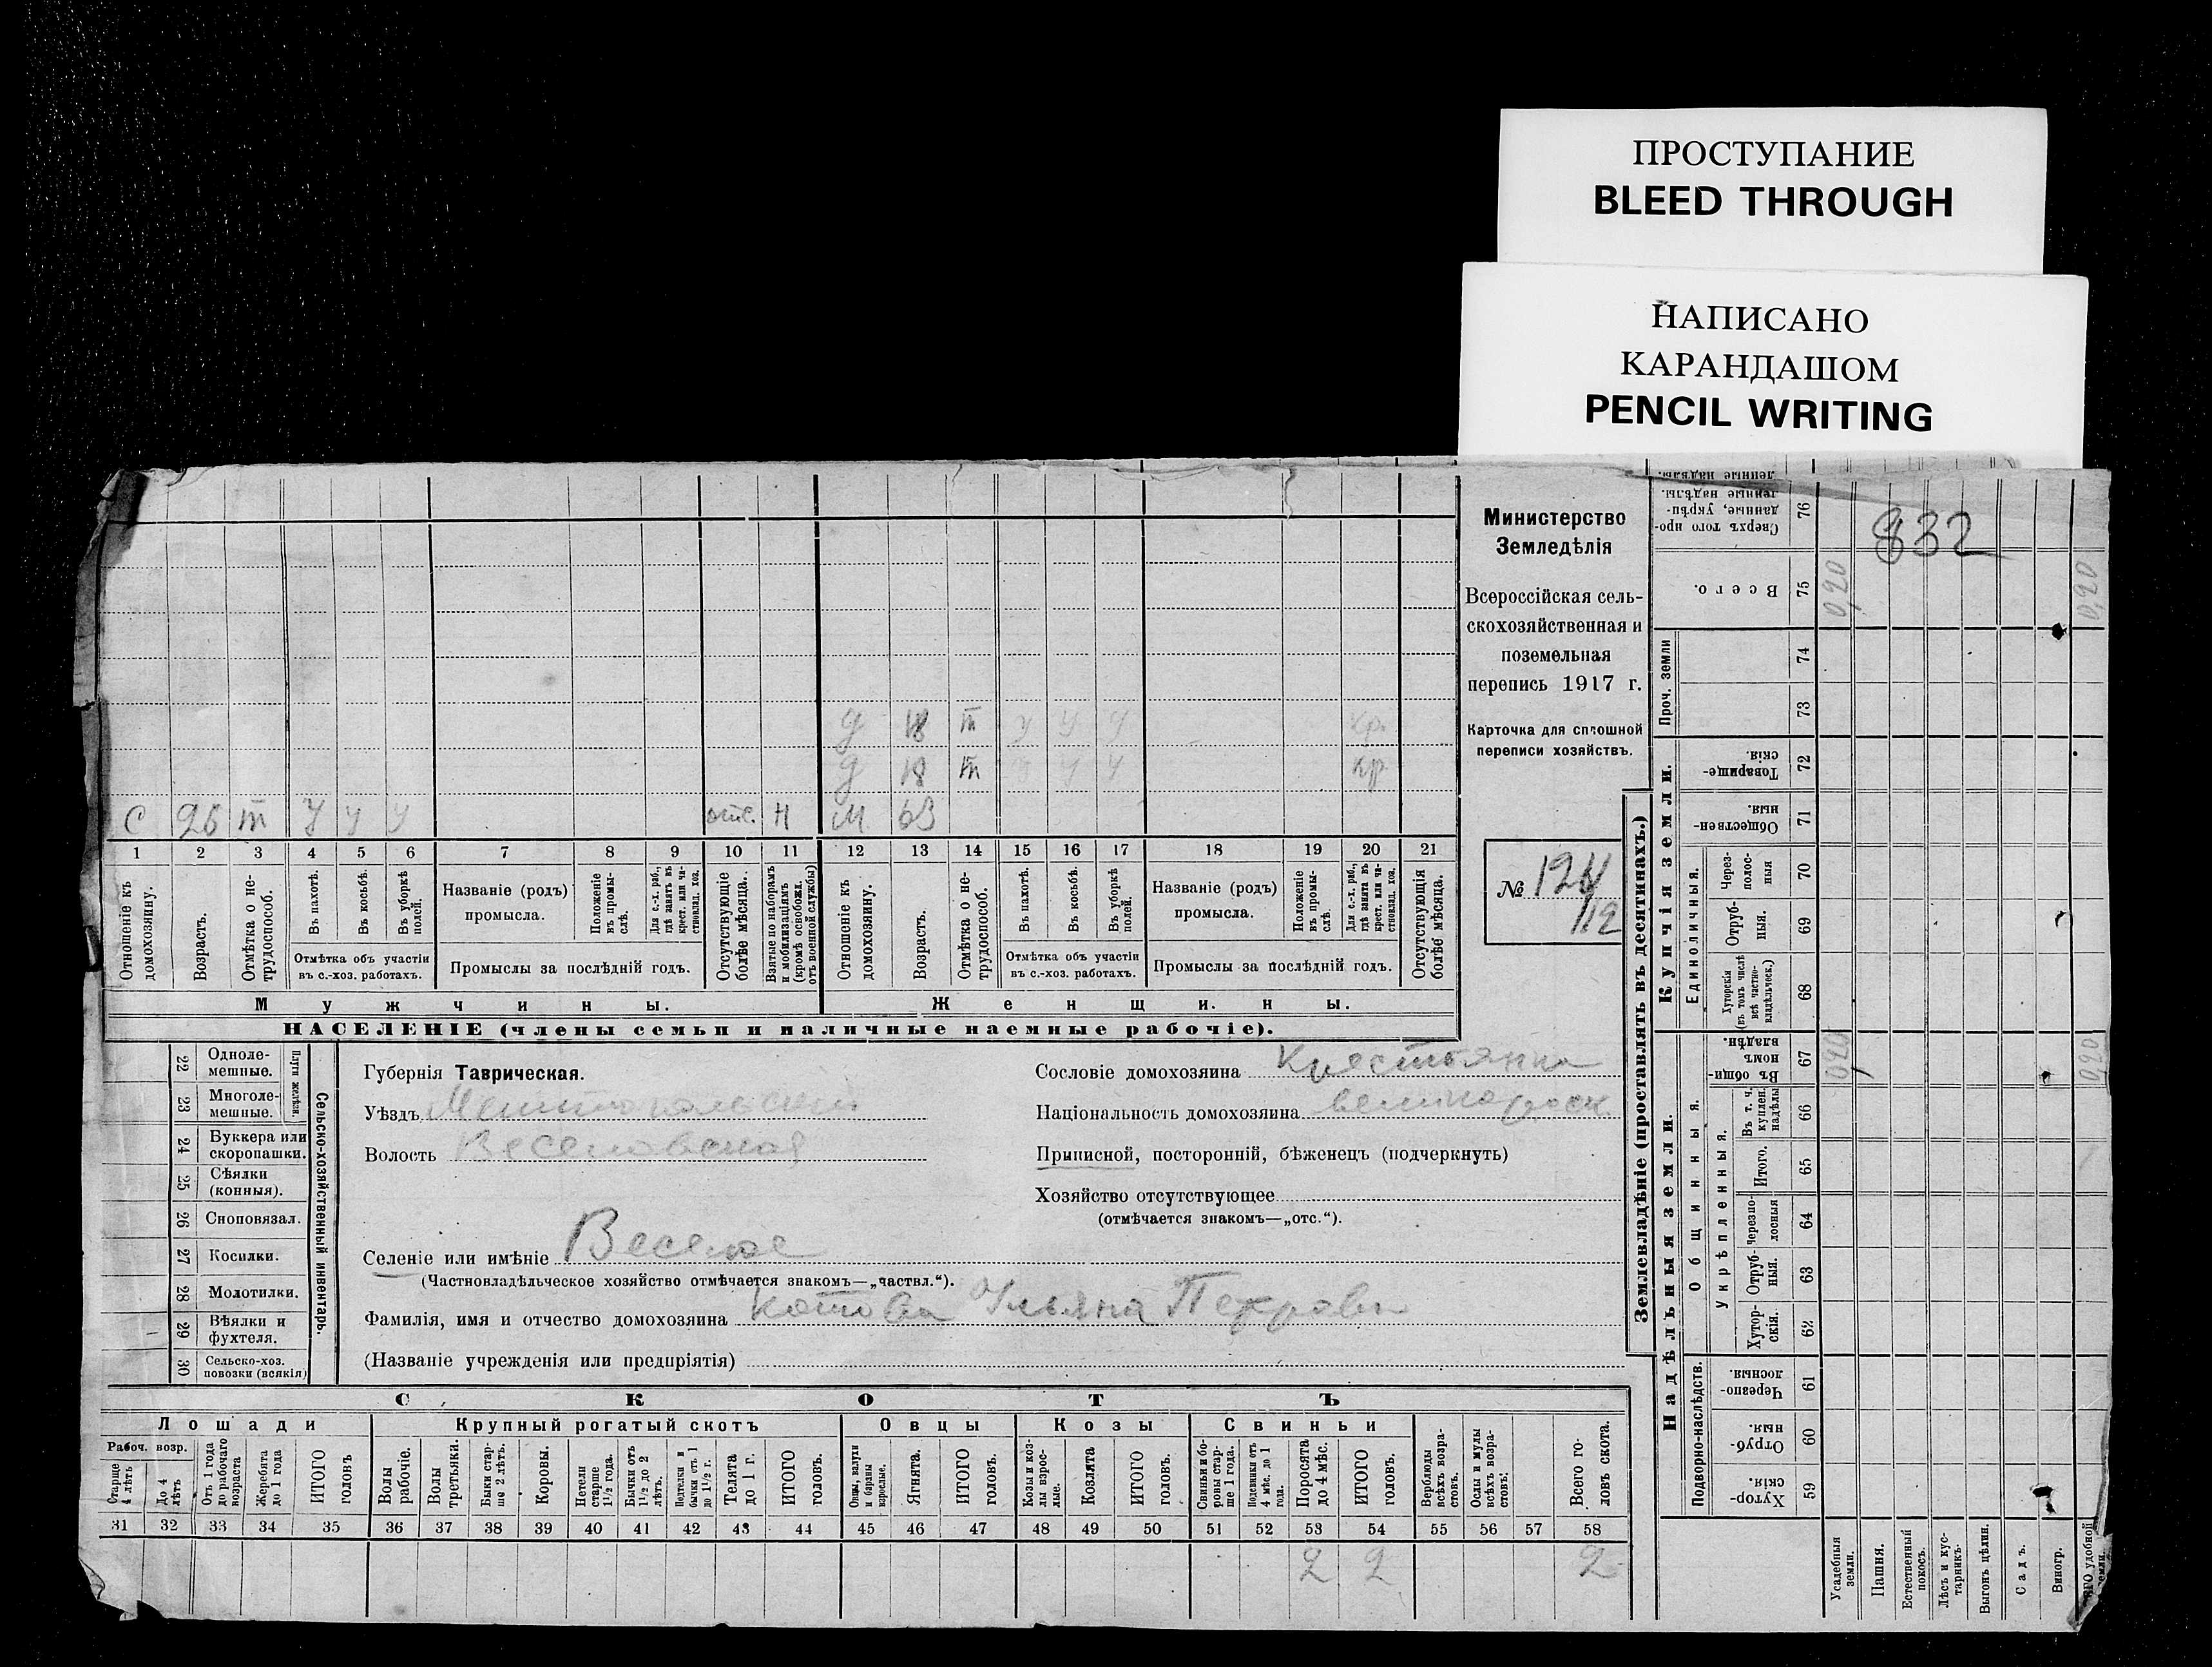 ПРОСТУПАНИЕ
BLEED THROUGH
НАПИСАНО
КАРАНДАШОМ
PENCIL WRITING
Министерство
Земледѣлія
Всероссійская сель-
скохозяйственная и
поземельная
перепись 1917 г.
Карточка для сплошной
переписи хозяйствъ.
№ 124
112
832
д 18 т у у у кр.
д 18 т у у у кр
С 26 т у у у отс. Н М 63
1 2 3 4 5 6 7 8 9 10 11 12 13 14 15 16 17 18 19 20 21
Отношеніе къ домохозяину.
Возрастъ.
Отмѣтка о не-трудоспособ.
Въ пахотѣ.
Въ косьбѣ.
Въ уборкѣ полей.
Отмѣтка объ участіи
въ с.-хоз. работахъ.
Названіе (родъ)
промысла.
Положеніе въ промы-слѣ.
Для с.-х. раб., гдѣ занятъ въ крест. или ча-стновлад. хоз.
Промыслы за послѣдній годъ.
Отсутствующіе болѣе мѣсяца.
Взятые по наборамъ и мобилизаціямъ (кромѣ освобожд. отъ военной службы)
Отношеніе къ домохозяину.
Возрастъ.
Отмѣтка о не-трудоспособ.
Въ пахотѣ.
Въ косьбѣ.
Въ уборкѣ полей.
Отмѣтка объ участіи
въ с.-хоз. работахъ.
Названіе (родъ)
промысла.
Положеніе въ промы-слѣ.
Для с.-х. раб., гдѣ занята въ крест. или ча-стновлад. хоз.
Промыслы за послѣдній годъ.
Отсутствующія болѣе мѣсяца.
Мужчины. Женщины.
НАСЕЛЕНІЕ (члены семьи и наличные наемные рабочіе).
22 Одноле-мешные.
23 Многоле-мешные.
Плуги желѣзн.
24 Буккера или скоропашки.
25 Сѣялки (конныя).
26 Сноповязал.
27 Косилки.
28 Молотилки.
29 Вѣялки и фухтеля.
30 Сельско-хоз. повозки (всякія)
Сельско-хозяйственный инвентарь.
Губернія Таврическая.
Уѣздъ Мелитопольский
Волость Веселовская
Селеніе или имѣніе Веселое
(Частновладѣльческое хозяйство отмѣчается знакомъ—„частвл.“).
Фамилія, имя и отчество домохозяина Котова Ульяна Петровн
(Названіе учрежденія или предпріятія)
Сословіе домохозяина Крестьянка
Національность домохозяина великоросс.
Приписной, посторонній, бѣженецъ (подчеркнуть)
Хозяйство отсутствующее
(отмѣчается знакомъ—„отс.“).
СКОТЪ
Лошади Крупный рогатый скотъ Овцы Козы Свиньи
Рабоч. возр.
Старше 4 лѣтъ
До 4 лѣтъ
Отъ 1 года до рабочаго возраста
Жеребята до 1 года
ИТОГО головъ
Волы рабочіе.
Волы третьяки.
Быки стар-ше 2 лѣтъ.
Коровы.
Нетели старше 1½ года.
Бычки отъ 1½ до 2 лѣтъ.
Подтелки и бычки отъ 1 до 1½ г.
Телята до 1 г.
ИТОГО головъ.
Овцы, валухи и бараны взрослые.
Ягнята.
ИТОГО головъ.
Козы и коз-лы взрос-лые.
Козлята
ИТОГО головъ.
Свиньи и бо-ровы стар-ше 1 года.
Подсвинки отъ 4 мѣс. до 1 года.
Поросята до 4 мѣс.
ИТОГО головъ.
Верблюды всѣхъ возра-стовъ.
Ослы и мулы всѣхъ возра-стовъ.
Всего го-ловъ скота.
31 32 33 34 35 36 37 38 39 40 41 42 43 44 45 46 47 48 49 50 51 52 53 54 55 56 57 58
2 2 2
Землевладѣніе (проставлять въ десятинахъ.)
Надѣльныя земли. Купчія земли. Проч. земли
Подворно-наслѣдств.
Общинныя.
Укрѣпленныя.
Единоличныя.
Сверхъ того про-данные, укрѣп-ленные надѣлы. 76
Всего. 75
74
73
Товарище-скія 72
Обществен-ныя 71
Через-полос-ныя 70
Отруб-ныя. 69
Хуторскія (въ томъ числѣ всѣ частно-владѣльческ.) 68
Въ общи-номъ владѣн. 67
Въ т. ч. куплен. надѣлы 66
Итого. 65
Черезпо-лосныя 64
Отруб-ныя. 63
Хутор-скія. 62
Черезпо-лосныя 61
Отруб-ныя. 60
Хутор-скія. 59
0,20 0,20
0,20 0,20
Усадебныя земли.
Пашня.
Естественный покосъ.
Лѣсъ и кус-тарникъ.
Выгонъ цѣлин.
Садъ.
Виногр.
удобной земли.